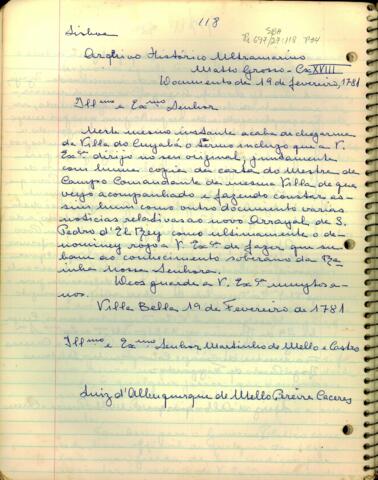 118
SBA
Pi 697/27:118 P34
Lisboa
Archivo Histórico Ultramarino
Matto Grosso - Cx XVIII
Documento de 19 de fevereiro, 1781
Illmo e Exmo Senhor
Neste mesmo instante acaba de chegarme
de Villa do Cuyabá o termo incluzo que a V.
Exª dirijo no seu original, juntamente
com huma copia da carta do Mestre de
Campo Comandante da mesma Villa de que
veyo acompanhado e fazendo constar as-
sim hum como outro documento varias
noticias relativas ao novo Arrayal de S.
Pedro d'El Rey como ultimamente o de-
nominey rogo a V. Exª de fazer que su-
bam ao conhecimento soberano da Ra-
inha Nossa Senhora.
Deos guarde a V. Exª muytos a-
nos.
Villa Bella 19 de Fevereiro de 1781
Illmo e Exmo Senhor Martinho de Mello e Castro
Luiz d'Albuquerque de Mello Pereira Caceres